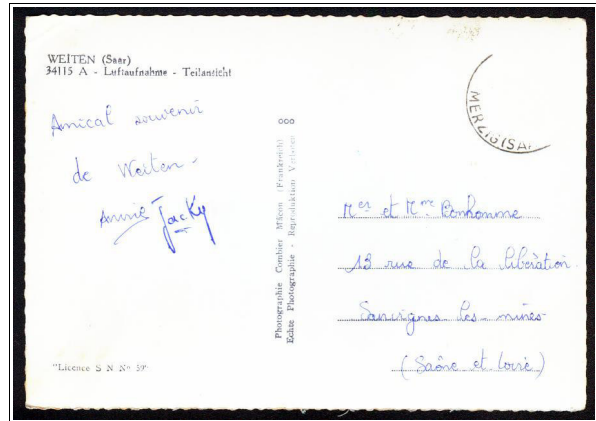 WEITEN (Saar)
34115 A - Luftaufnahme - Teilansicht
Amical souvenir
de Weiten -
Annie Jacky
"Licence S N Nº 59"
Photographie Combier Mâcon (Frankreich)
Echte Photographie - Reproduktion Verboten
MERZIG (SA
Mer et Mme Bonhomme
13 rue de la libération
Sanvignes les mines
(Saône et Loire)